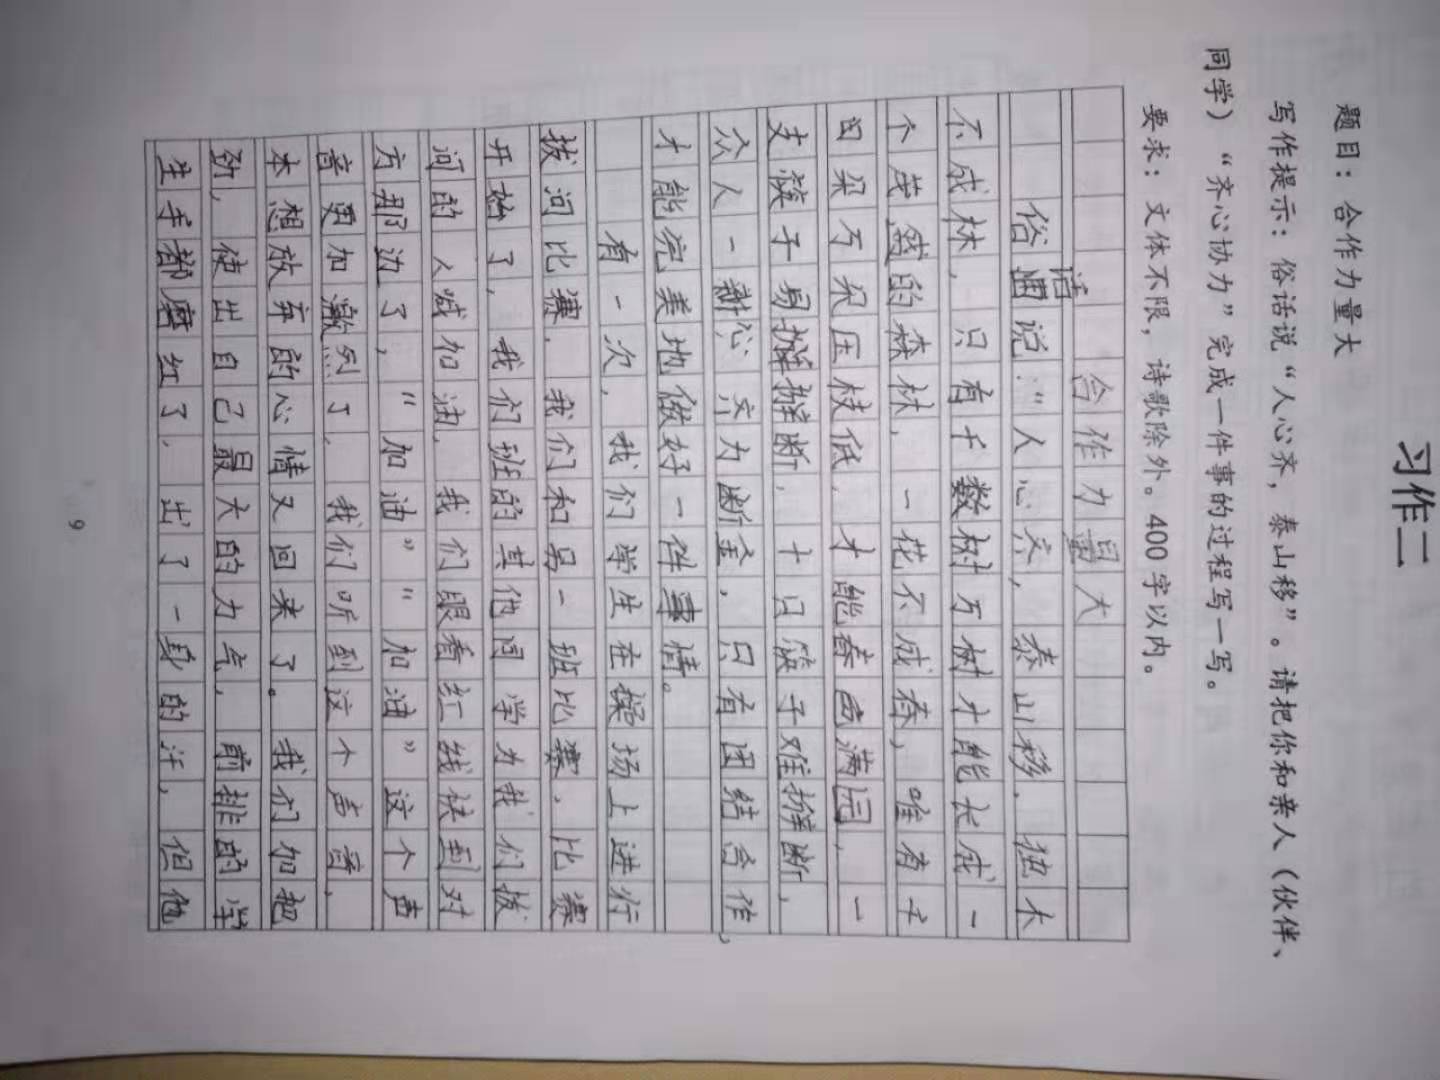 习作二
题目：合作力量大
写作提示：俗话说“人心齐，泰山移”。请把你和亲人（伙伴、
同学）“齐心协力”完成一件事的过程写一写。
要求：文体不限，诗歌除外。400字以内。
合作力量大
俗话说：“人心齐，泰山移。独木
不成林，只有千数树万树才能长成一
个茂盛的森林，一花不成春，唯有千
朵万朵压枝低，才能春色满园，一
支筷子易掰断，十只筷子难掰断，
众人一心齐力断金，只有团结合作，
才能完美地做好一件事情。
有一次，我们学生在操场上进行
拔河比赛，我们和另一班比赛，比赛
开始了，我们班的其他同学为我们拔
河的人喊加油，我们眼看红线快到对
方那边了，“加油”“加油”这个声
音更加激烈了，我们听到这个声音，
本想放弃的心情又回来了。我们加把
劲，使出自己最大的力气，前排的学
生手都磨红了，出了一身的汗，但他
9